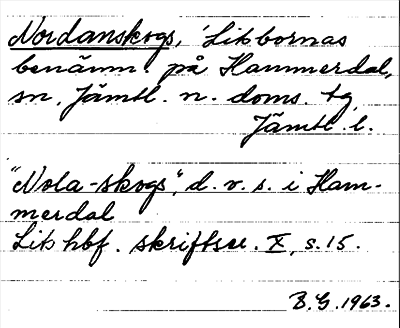 Nordanskogs, 'Litbornas
benämn. på Hammerdal,
sn, Jämtl. n. doms. tg
Jämtl. l.
"Nola-skogs", d. v. s. i Ham-
merdal
Lits hbf. skriftser. X, s. 15.
B. G. 1963.